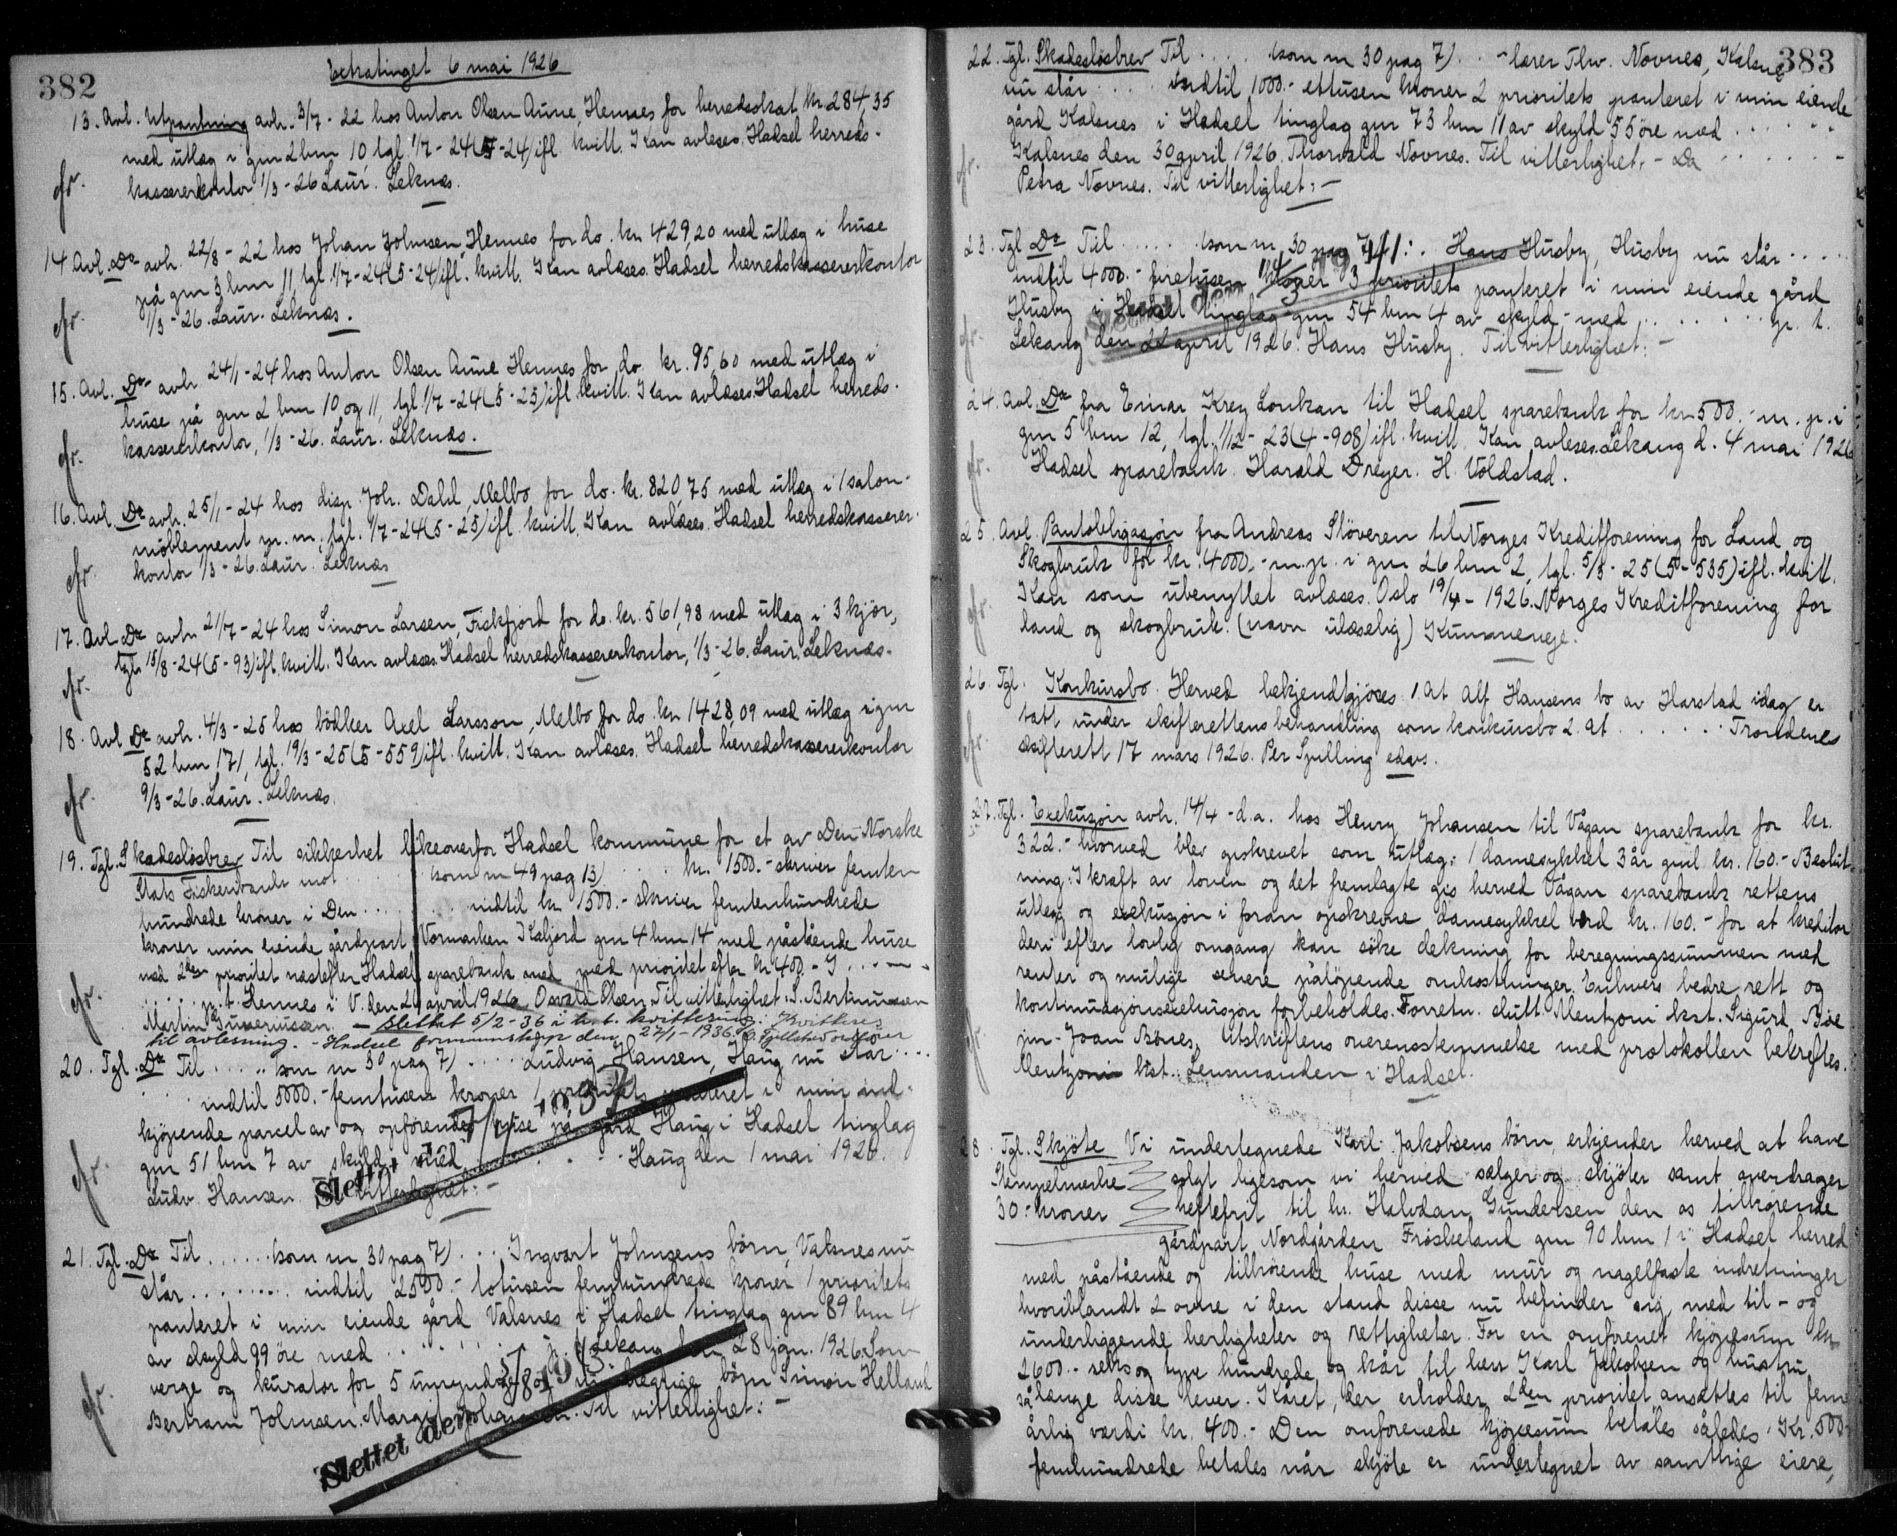 382
Extratinget 6 mai 1926
13. Avl. Utpantning avh. 3/7-22 hos Anton Olsen Aune, Hennes for herredsskat kr. 284,35
med utlæg i gnr 2 bnr 10, tgl. 1/7-24 (5-24) ifl. kvitt. Kan avlæses. Hadsel herreds-
kassererkontor 1/3-26. Laur. Leknæs.
14. Avl. Do avh. 22/8-22 hos Johan Johnsen, Hennes for do. kr. 429,20 med utlæg i huse
på gnr 3 bnr 11 tgl. 1/7-24 (5-24) ifl. kvitt. Kan avlæses. Hadsel herredskassererkontor
1/3-26. Laur. Leknæs.
15. Avl. Do avh. 24/1-24 hos Anton Olsen Aune Hennes for do kr. 95,60 med utlæg i
huse på gnr 2 bnr 10 og 11, tgl. 1/7-24 (5-25) ifl. kvitt. Kan avlæses. Hadsel herreds-
kassererkontor, 1/3-26. Laur. Leknæs.
16. Avl. Do avh. 25/1-24 hos disp. Joh. Dahl, Melbo for do. kr. 820,75 med utlæg i 1 salon-
möblement m.m., tgl. 1/7-24 (5-25) ifl. kvitt. Kan avlæses. Hadsel herredskasserer-
kontor 1/3-26. Laur. Leknæs
17. Avl. Do avh. 21/7-24 hos Simon Larsen, Fiskfjord for do. kr. 561,98 med utlæg i 3 kjör,
tgl. 15/8-24 (5-93) ifl. kvitt. Kan avlæses. Hadsel herredskassererkontor, 1/3-26. Laur. Leknæs.
18. Avl. Do avh. 4/3-25 hos bödker Axel Larsson, Melbo for do. kr. 1428,09 med utlæg i gnr
52 bnr 171, tgl. 19/3-25 (5-559) ifl. kvitt. Kan avlæses. Hadsel herredskassererkontor
9/3-26. Laur. Leknæs.
19. Tgl. Skadeslösbrev Til sikkerhet likeoverfor Hadsel kommune for et av Den Norske
Stats Fiskeribank mot . . . . (som nr 49 pag 13) . . . . kr. 1500.- skriver femten
hundrede kroner i Den . . . . . . indtil kr. 1500.- skriver femtenhundrede
kroner min eiende gårdpart Vormarken Kaljord gnr 4 bnr 14 med påstående huse
med 2den prioritet næstefter Hadsel sparebank med prioritet efter kr 400.- I . . . . .
. . . . p.t. Hennes i V. den 21 april 1926. Osvald Olsen. Til vitterlighet: S. Bertinussen
Martin Gunerussen. - Slettet 5/2-36 i hht. kvittering: Kvitteres
til avlesning. - Hadsel formannskap den 27/1-1936.
20. Tgl. Do Til . . . . (som nr 30 pag 7) . . . . Ludvig Hansen, Haug nu står . . . .
. . . indtil 5000.- femtusen kroner 1 prioritets panteret i min ind-
kjöpende parcel av og opförende huse på gård Haug i Hadsel tinglag
gnr 51 bnr 7 av skyld med . . . . . . Haug den 1 mai 1926.
Ludv. Hansen. Til vitterlighet:-
Slettet den 7/1 1937
21. Tgl. Do Til . . . . . (som nr 30 pag 7) . . . Ingvart Johnsens börn, Valsnes nu
står . . . . . . . indtil 2500.- totusen femhundrede kroner 1 prioritets
panteret i min eiende gård Valsnes i Hadsel tinglag gnr 89 bnr 4
av skyld 99 öre med . . . . . . . . p.t. Lekang den 28 jan. 1926. Som
verge og kurator for 5 umyndige börn Simon Helland
Bertram Johnsen. Margit Johansen. Til vitterlighet:-
Slettet den
383
22. Tgl. Skadeslösbrev Til . . . . (som nr 30 pag 7) . . - lærer Thv. Novnes, Kalsnes
nu står . . . . indtil 1000.- ettusen kroner 2 prioritets panteret i min eiende
gård Kalsnes i Hadsel tinglag gnr 73 bnr 11 av skyld 55 öre med . . . . . .
Kalsnes den 30 april 1926. Thorvald Novnes. Til vitterlighet: - Da . . . . . .
Petra Novnes. Til vitterlighet:-
23. Tgl. Do Til . . . . . (som nr 30 pag 7) . . . Hans Husby, Husby nu står . . . . .
indtil 4000.- firetusen kroner 3 prioritets panteret i min eiende gård
Husby i Hadsel tinglag gnr 54 bnr 4 av skyld - med . . . . . . . . p.t.
Lekang den 22 april 1926. Hans Husby. Til vitterlighet:-
Slettet den 14/3 1941
24. Avl. Do fra Einar Krey Lonkan til Hadsel sparebank for kr 500.- m.p. i
gnr 5 bnr 12, tgl. 1/12-23 (4-908) ifl. kvitt. Kan avleses. Lekang d. 4 mai 1926
Hadsel sparebank. Harald Dreyer. H Voldstad.
25. Avl. Pantobligasjon fra Andreas Slöveren til Norges Kreditforening for Land og
Skogbruk for kr. 4000.- m.p. i gnr 26 bnr 2, tgl. 5/3-25 (5-535) ifl. kvitt.
Kan som ubenyttet avlæses. Oslo 19/4-1926. Norges Kreditforening for
land og skogbruk. (navn ulæselig) Kummeneje.
26. Tgl. Konkursbo. Herved bekjendtgjöres 1. At Alf Hansens bo av Harstad idag er
tatt under skifterettens behandling som konkursbo 2. at . . . . . . Trondenes
skifterett 17 mars 1926. Per Spilling edvs.
27. Tgl. Exekusjon avh. 14/4-d.a. hos Henry Johansen til Vågan sparebank for kr.
322.- hvorved blev opskrevet som utlæg: 1 damesykkel 3 år gml. kr. 160.- Beslut-
ning: I kraft av loven og det fremlagte gis herved Vågan sparebank rettens
utlæg og exekusjon i foran opskrevne damesykkel verd kr. 160.- for at kreditor
deri efter lovlig omgang kan söke dekning for beregningssummen med
renter og mulige senere påløpende omkostninger. Enhvers bedre rett og
kontinuasjonsexekusjon forbeholdes. Forretn. slutt. Mentzoni kst. Sigurd Böe
jun. Joan Bönes. Utskriftens overensstemmelse med protokollen bekreftes.
Mentzoni kst. Lensmanden i Hadsel.
28. Tgl. Skjöte Vi undertegnede Karl Jakobsens börn, erkjender herved at have
Stempelmerke solgt ligesom vi herved sælger og skjöter samt overdrager
30.- kroner heftefrit til hr. Halvdan Gundersen den os tilhörende
gårdpart Nordgården Fröskeland gnr 90 bnr 1 i Hadsel herred
med påstående og tilhörende huse med mur og nagelfaste indretninger
hvoriblandt 2 ovne i den stand disse nu befinder sig med til- og
underliggende herligheter og rettigheter. For en omforenet kjöpesum kr
2600.- seks og tyve hundrede og kår til hr. Karl Jakobsen og hustru
så længe disse lever. Kåret, der erholder 2den prioritet ansættes til fem
årlig værdi kr. 400.- Den omforenede kjöpesum betales således: Kr. 500-
femhundrede betales når skjöte er undertegnet av samtlige eiere,